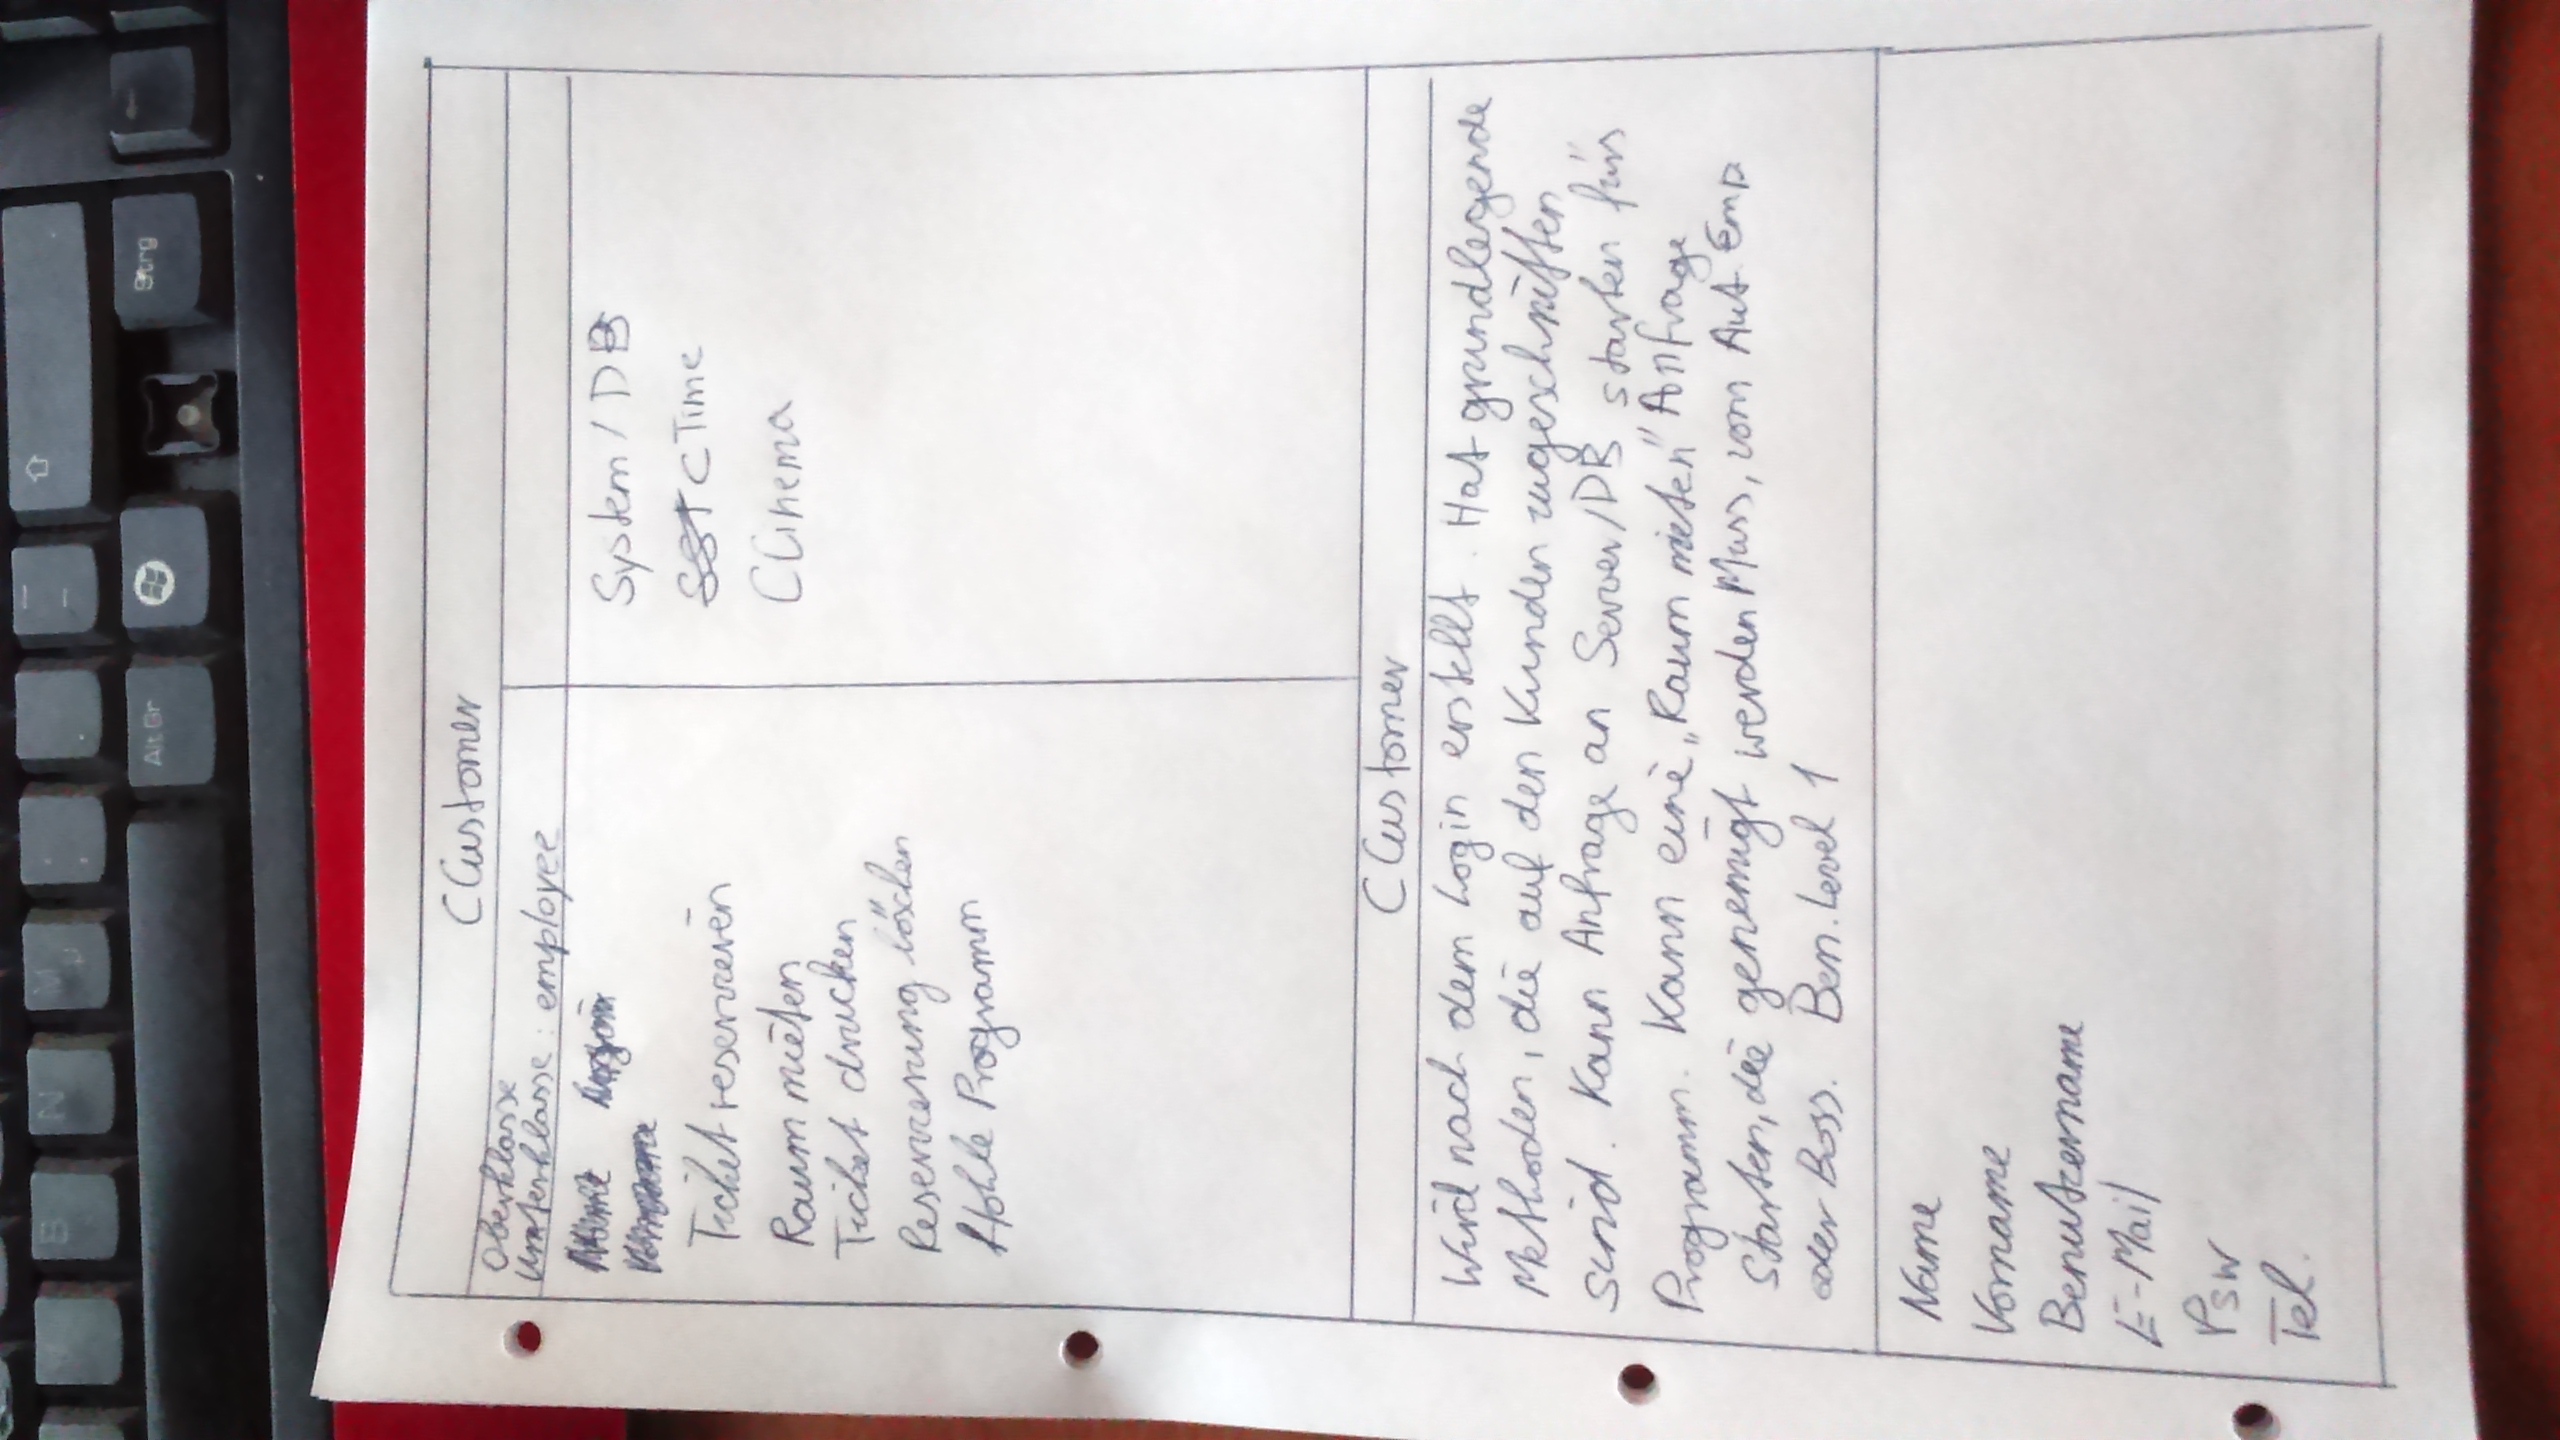 B N M
µ
Alt Gr
Strg
CCustomer
Oberklasse
Unterklasse : employee
System / DB
Ticket reservieren
CTime
Raum mieten
CCinema
Ticket drucken
Reservierung löschen
Hohle Programm
CCustomer
Wird nach dem Login erstellt. Hat grundlegende
Methoden, die auf den Kunden zugeschnitten
sind. Kann Anfrage an Server/DB starten fürs
Programm. Kann eine „Raum mieten" Anfrage
Starten, die genemigt werden Muss, vom Aut Emp
oder Boss. Ben. Level 1
Name
Vorname
Benutzername
E-Mail
Psw
Tel.